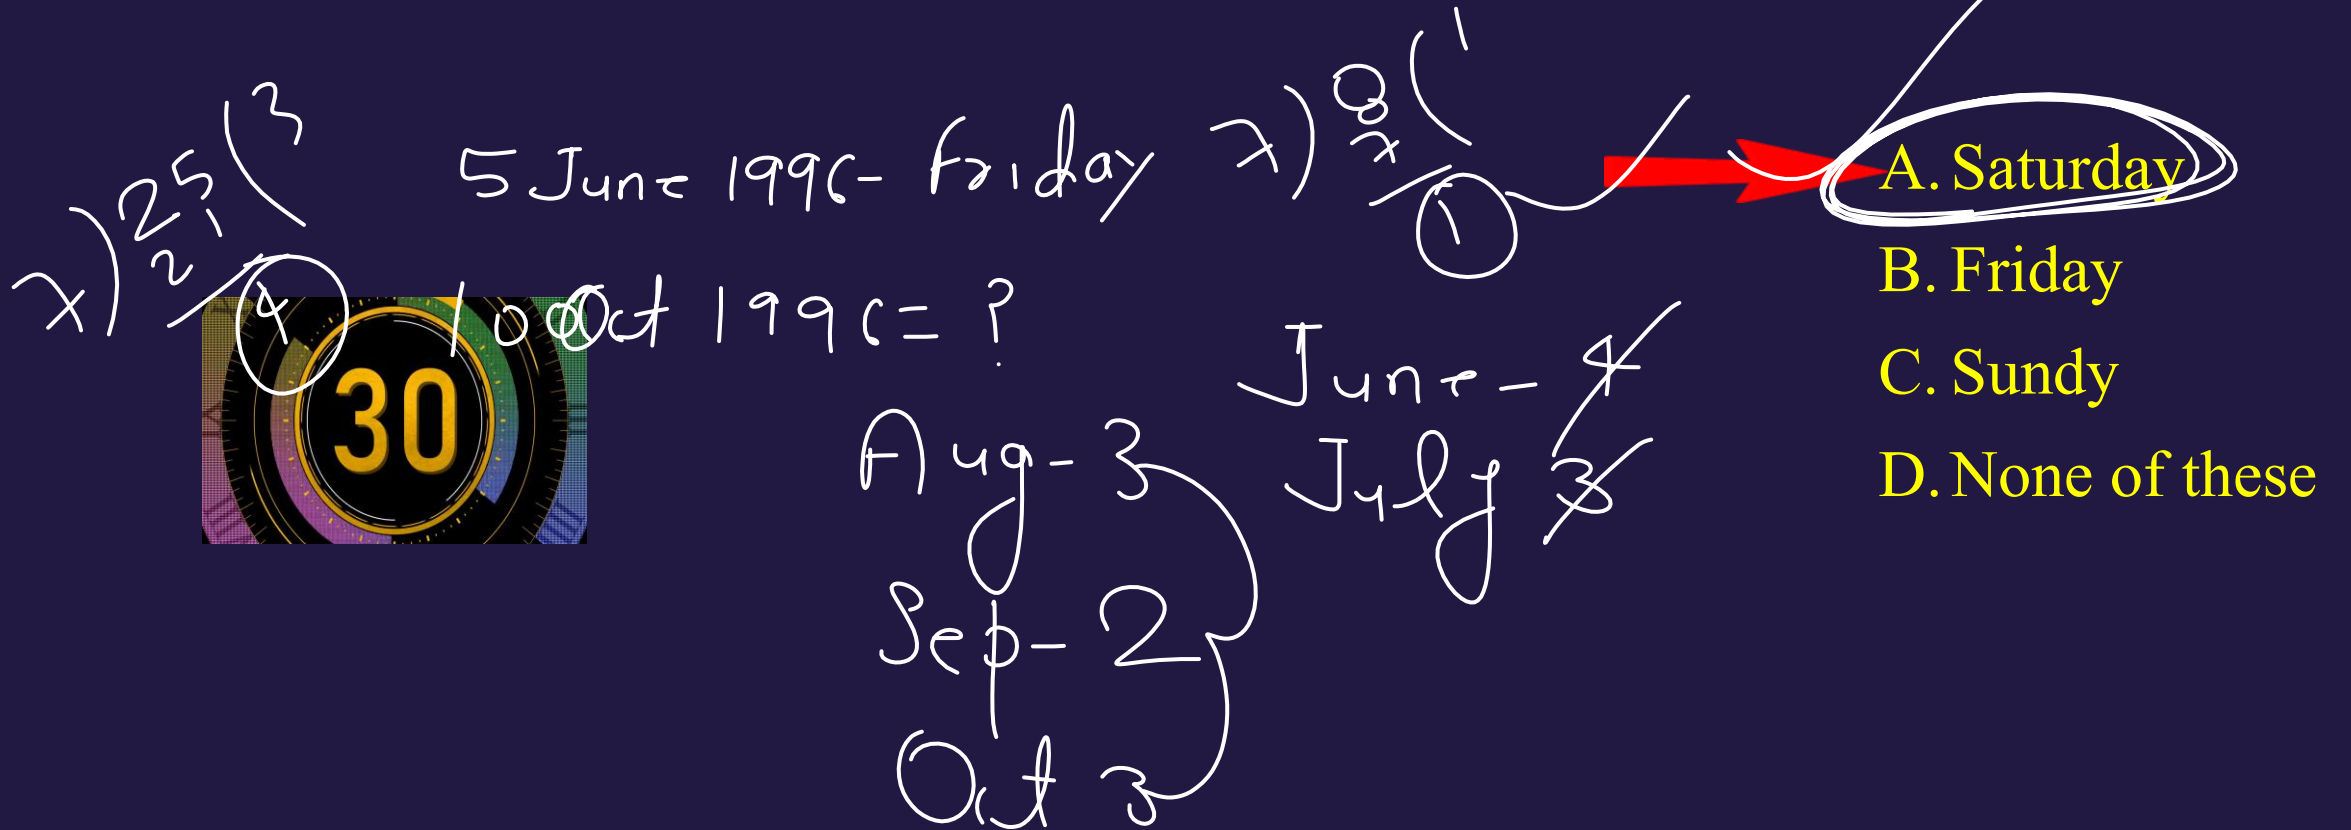 5 June 1996- Friday
10 Oct 1996= ?
7) 25 ( 3
21
4
7) 8 ( 1
7
1
30
June - 4
July 3
Aug - 3
Sep - 2
Oct 3
A. Saturday
B. Friday
C. Sundy
D. None of these